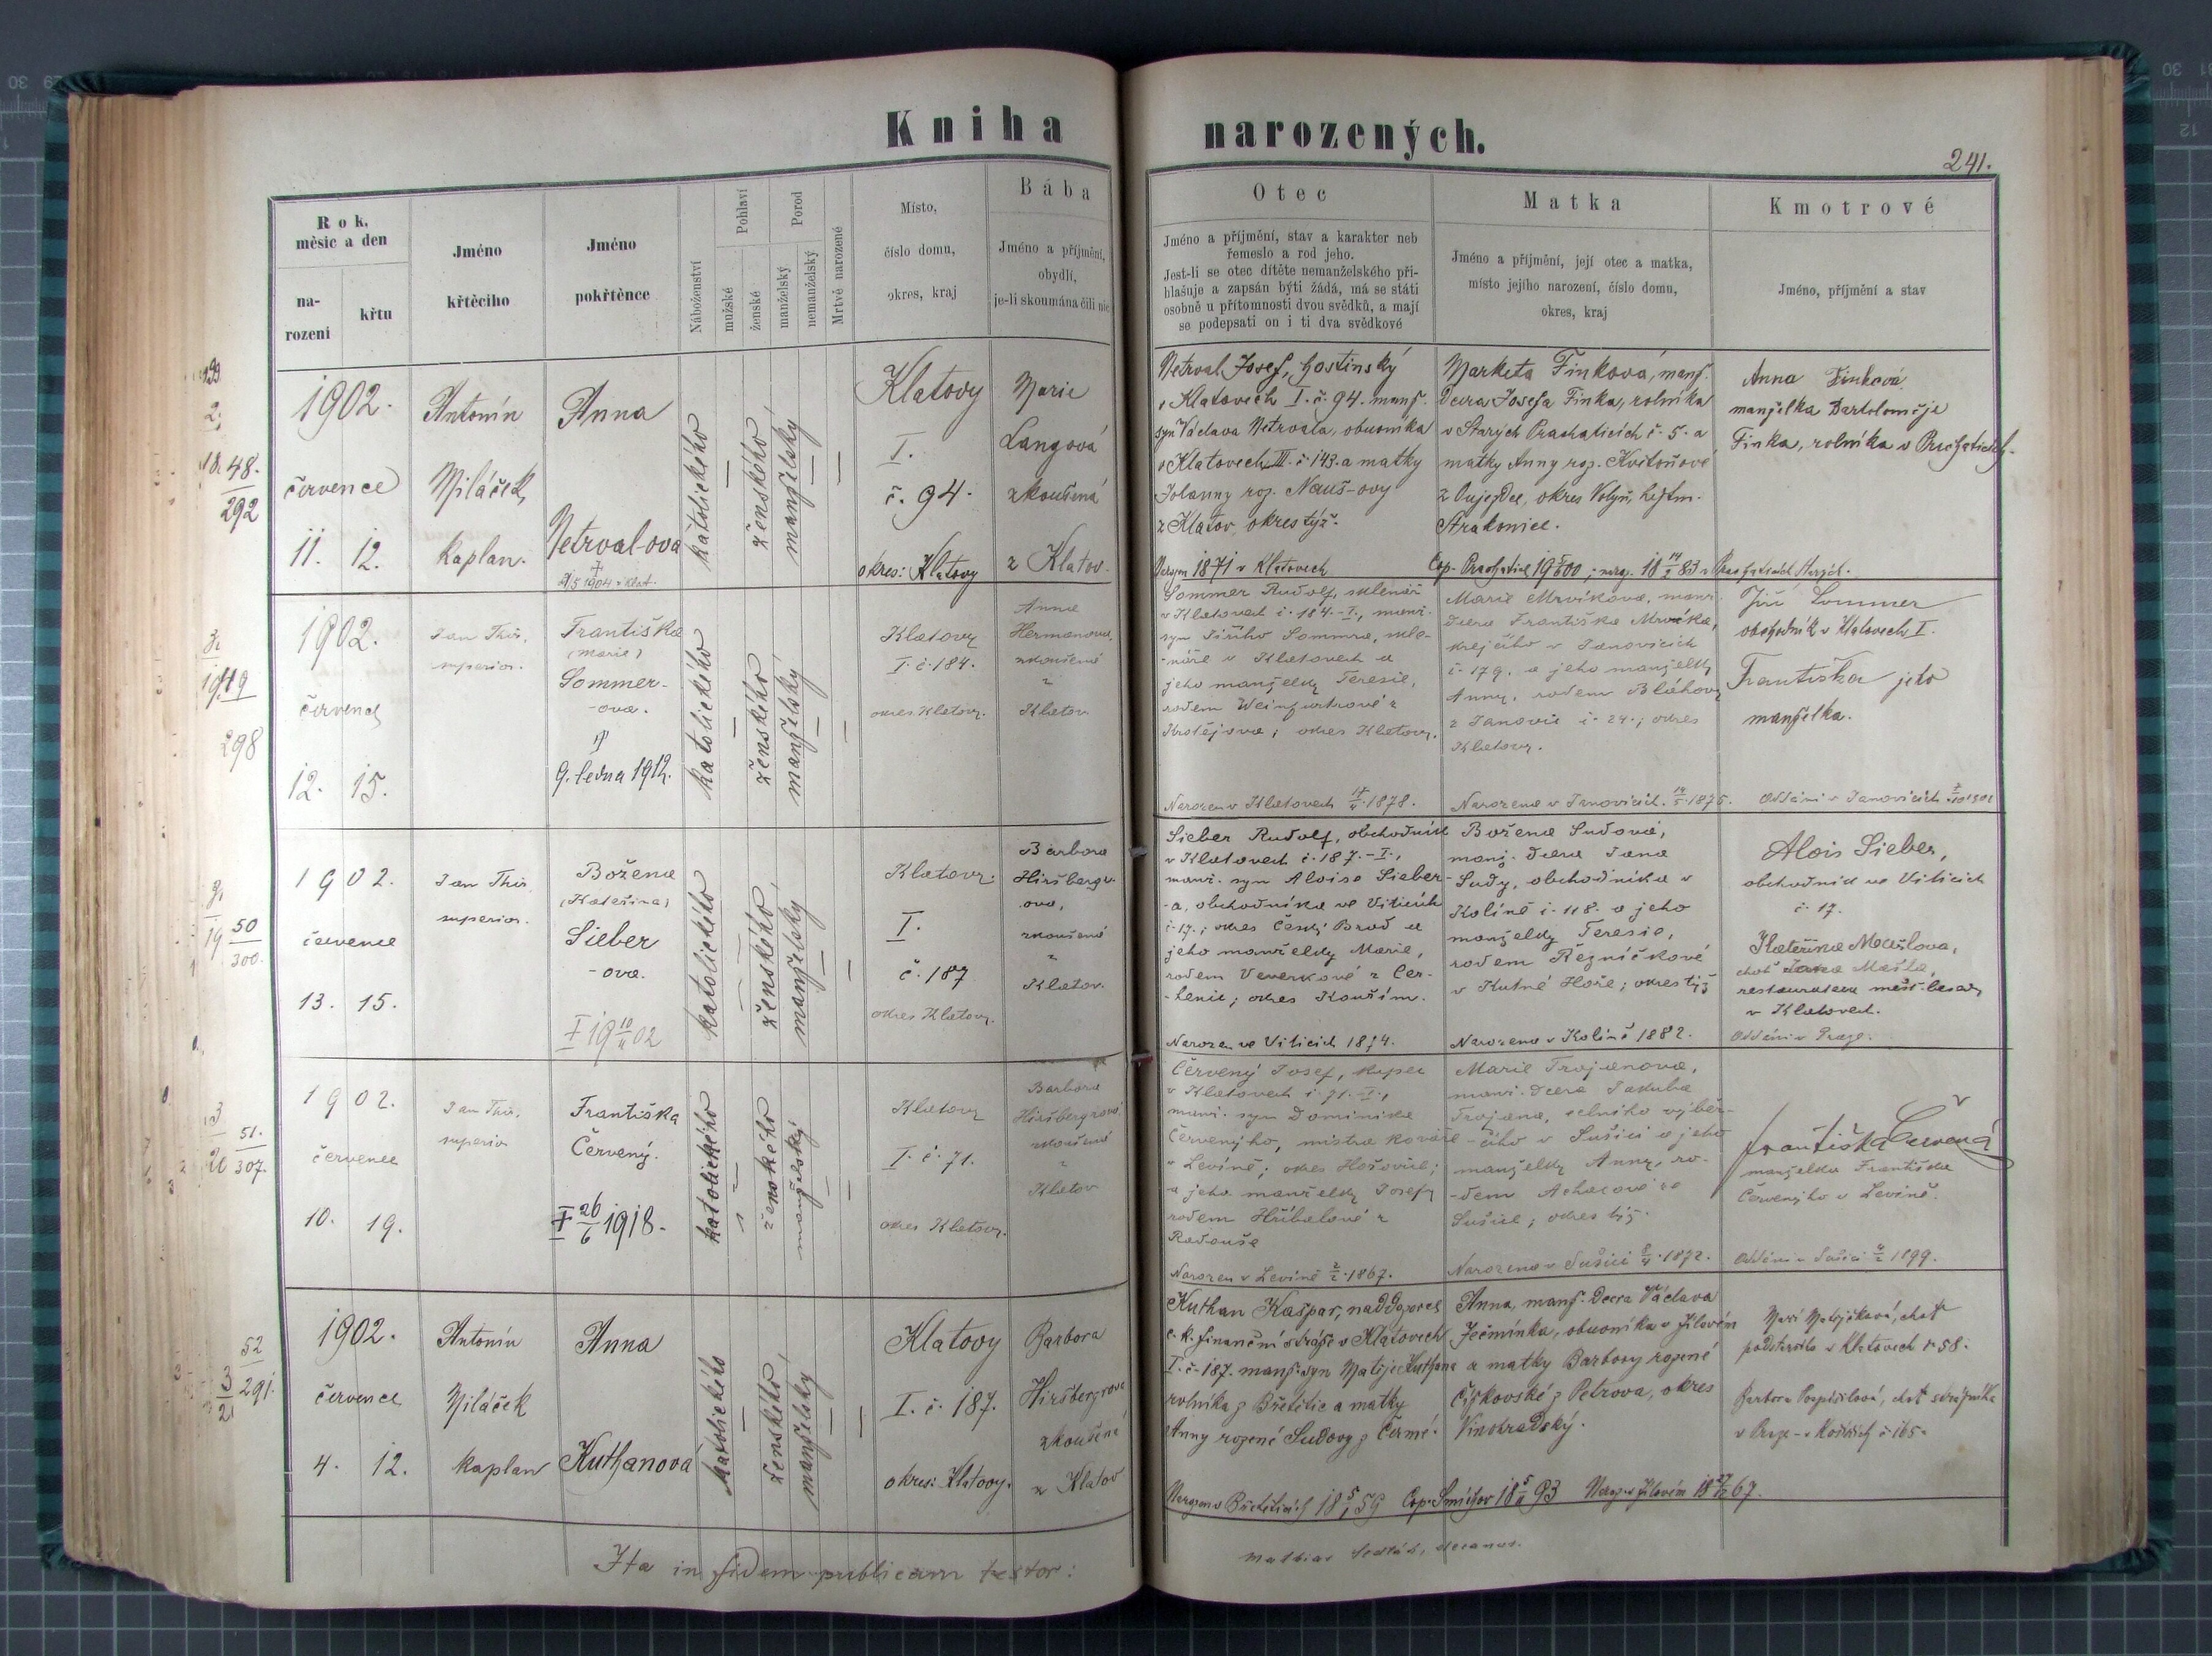 Kniha narozených.
241.
Rok, měsíc a den
narození
křtu
Jméno křtěcího
Jméno pokřtěnce
Náboženství
Pohlaví
mužské
ženské
Porod
manželský
nemanželský
Mrtvě narozené
Místo,
číslo domu,
okres, kraj
Bába
Jméno a příjmění,
obydlí,
je-li skoumána čili nic
Otec
Jméno a příjmění, stav a karakter neb
řemeslo a rod jeho.
Jest-li se otec dítěte nemanželského při-
hlašuje a zapsán býti žádá, má se státi
osobně u přítomnosti dvou svědků, a mají
se podepsati on i ti dva svědkové
Matka
Jméno a příjmění, její otec a matka,
místo jejího narození, číslo domu,
okres, kraj
Kmotrové
Jméno, příjmění a stav
48.
292
1902.
července
11. 12.
Antonín
Miláček,
kaplan.
Anna
Netrval-ova
katolického
ženského
manželský
Klatovy
I.
č. 94.
okres: Klatovy
Marie
Langová
zkoušená
z Klatov.
Netrval Josef, hostinský
v Klatovech I. č. 94. manž.
syn Václava Netrvala, obuvníka
v Klatovech III. č. 143. a matky
Johanny roz. Nauš-ovy
z Klatov, okres týž.
1871 v Klatovech
Marketa Finková, manž.
Dcera Josefa Finka, rolníka
v Starých Prachaticích č. 5. a
matky Anny roz. Květoňové
z Oujezdce, okres Volyň, hejtm.
Strakonice.
Anna Finková
manželka Bartoloměje
Finka, rolníka v Prachaticích.
49
298
1902.
července
12. 15.
Jan Thir,
superior.
Františka
(Marie)
Sommer-
-ova.
9. ledna 1912.
katolického
ženského
manželský
Klatovy
I. č. 184.
okres Klatovy.
Anna
Hermanova,
zkoušená
z
Klatov
Sommer Rudolf, sklenář
v Klatovech č. 184.-I., manž.
syn Jiřího Sommra, skle-
-náře v Klatovech a
jeho manželky Teresie,
rodem Weinfurtrové z
; okres Klatovy.
Narozen v Klatovech 1878.
Marie Mrvíkova, manž.
dcera Františka Mrvíka,
krejčího v Janovicích
č. 179. a jeho manželky
Anny, rodem Bláhovy
z Janovic č. 24.; okres
Klatovy.
Narozena v Janovicích 1875.
Jiří Sommer
obchodník v Klatovech I.
Františka jeho
manželka.
Oddáni v Janovicích
50
300.
1902.
července
13. 15.
Jan Thir,
superior.
Božena
(Kateřina)
Sieber
-ova.
katolického
ženského
manželský
Klatovy
I.
č. 187
okres Klatovy.
Barbora
Hiršbergr-
ova,
zkoušená
z
Klatov.
Sieber Rudolf, obchodník
v Klatovech č. 187.-I.,
manž. syn Aloise Sieber-
-a, obchodníka ve Viticích
č. 17.; okres Český Brod a
jeho manželky Marie,
rodem Veverkové z Cer-
-henic; okres Kouřim.
Narozen ve Viticích 1874.
Božena Sudová,
manž. dcera Jana
Sudy, obchodníka v
Kolíně č. 118. a jeho
manželky Teresie,
rodem Řezníčkové
v Kutné Hoře; okres týž
Narozena v Kolíně 1882.
Alois Sieber,
obchodník ve Viticích
č. 17.
Kateřina Mašlova,
choť Jana Mašla,
restaurateura měšť. besedy
v Klatovech.
Oddáni v Praze.
51.
307.
1902.
července
10. 19.
Jan Thir,
superior
Františka
Červený.
26/6 1918.
katolického
ženského
manželský
Klatovy
I. č. 71.
okres Klatovy.
Barbora
Hiršbergrova
zkoušená
z
Klatov
Červený Josef, kupec
v Klatovech č. 71.-I.,
manž. syn Dominika
Červenýho, mistra kováře
v Levíně; okres Hořovice;
a jeho manželky Josefy
rodem Hříbalové z
Radouše
Narozen v Levíně 1867.
Marie Trojanova,
manž. dcera Jakuba
Trojana, celního výběr-
-čího v Sušici a jeho
manželky Anny, ro-
-dem
Sušice; okres týž.
Narozena v Sušici 1872.
Františka Červená
manželka Františka
Červenýho v Levíně.
Oddáni v Sušici 1899.
52
291.
1902.
července
4. 12.
Antonín
Miláček
kaplan
Anna
Kuthanová
katolického
ženského
manželský
Klatovy
I. č. 187.
okres: Klatovy.
Barbora
Hiršbergrova
zkoušená
z Klatov
Kuthan Kašpar, naddozorce
c. k. finanční stráže v Klatovech
I. č. 187. manž. syn Matěje Kuthana
rolníka z Břetětic a matky
Anny rozené Sudovy z Čermé.
Anna, manž. Dcera Václava
Ječmínka, obuvníka v Jílovém
a matky Barbory rozené
Čížkovské z Petrova, okres
Vinohradský.
Cop. Smíchov 18 93
choť
v Klatovech č. 58.
Barbora Pospíšilová, choť strážníka
v Praze - v Košířích č. 165.
Ita in fidem publicam testor:
Mathias Sedlák, decanus.